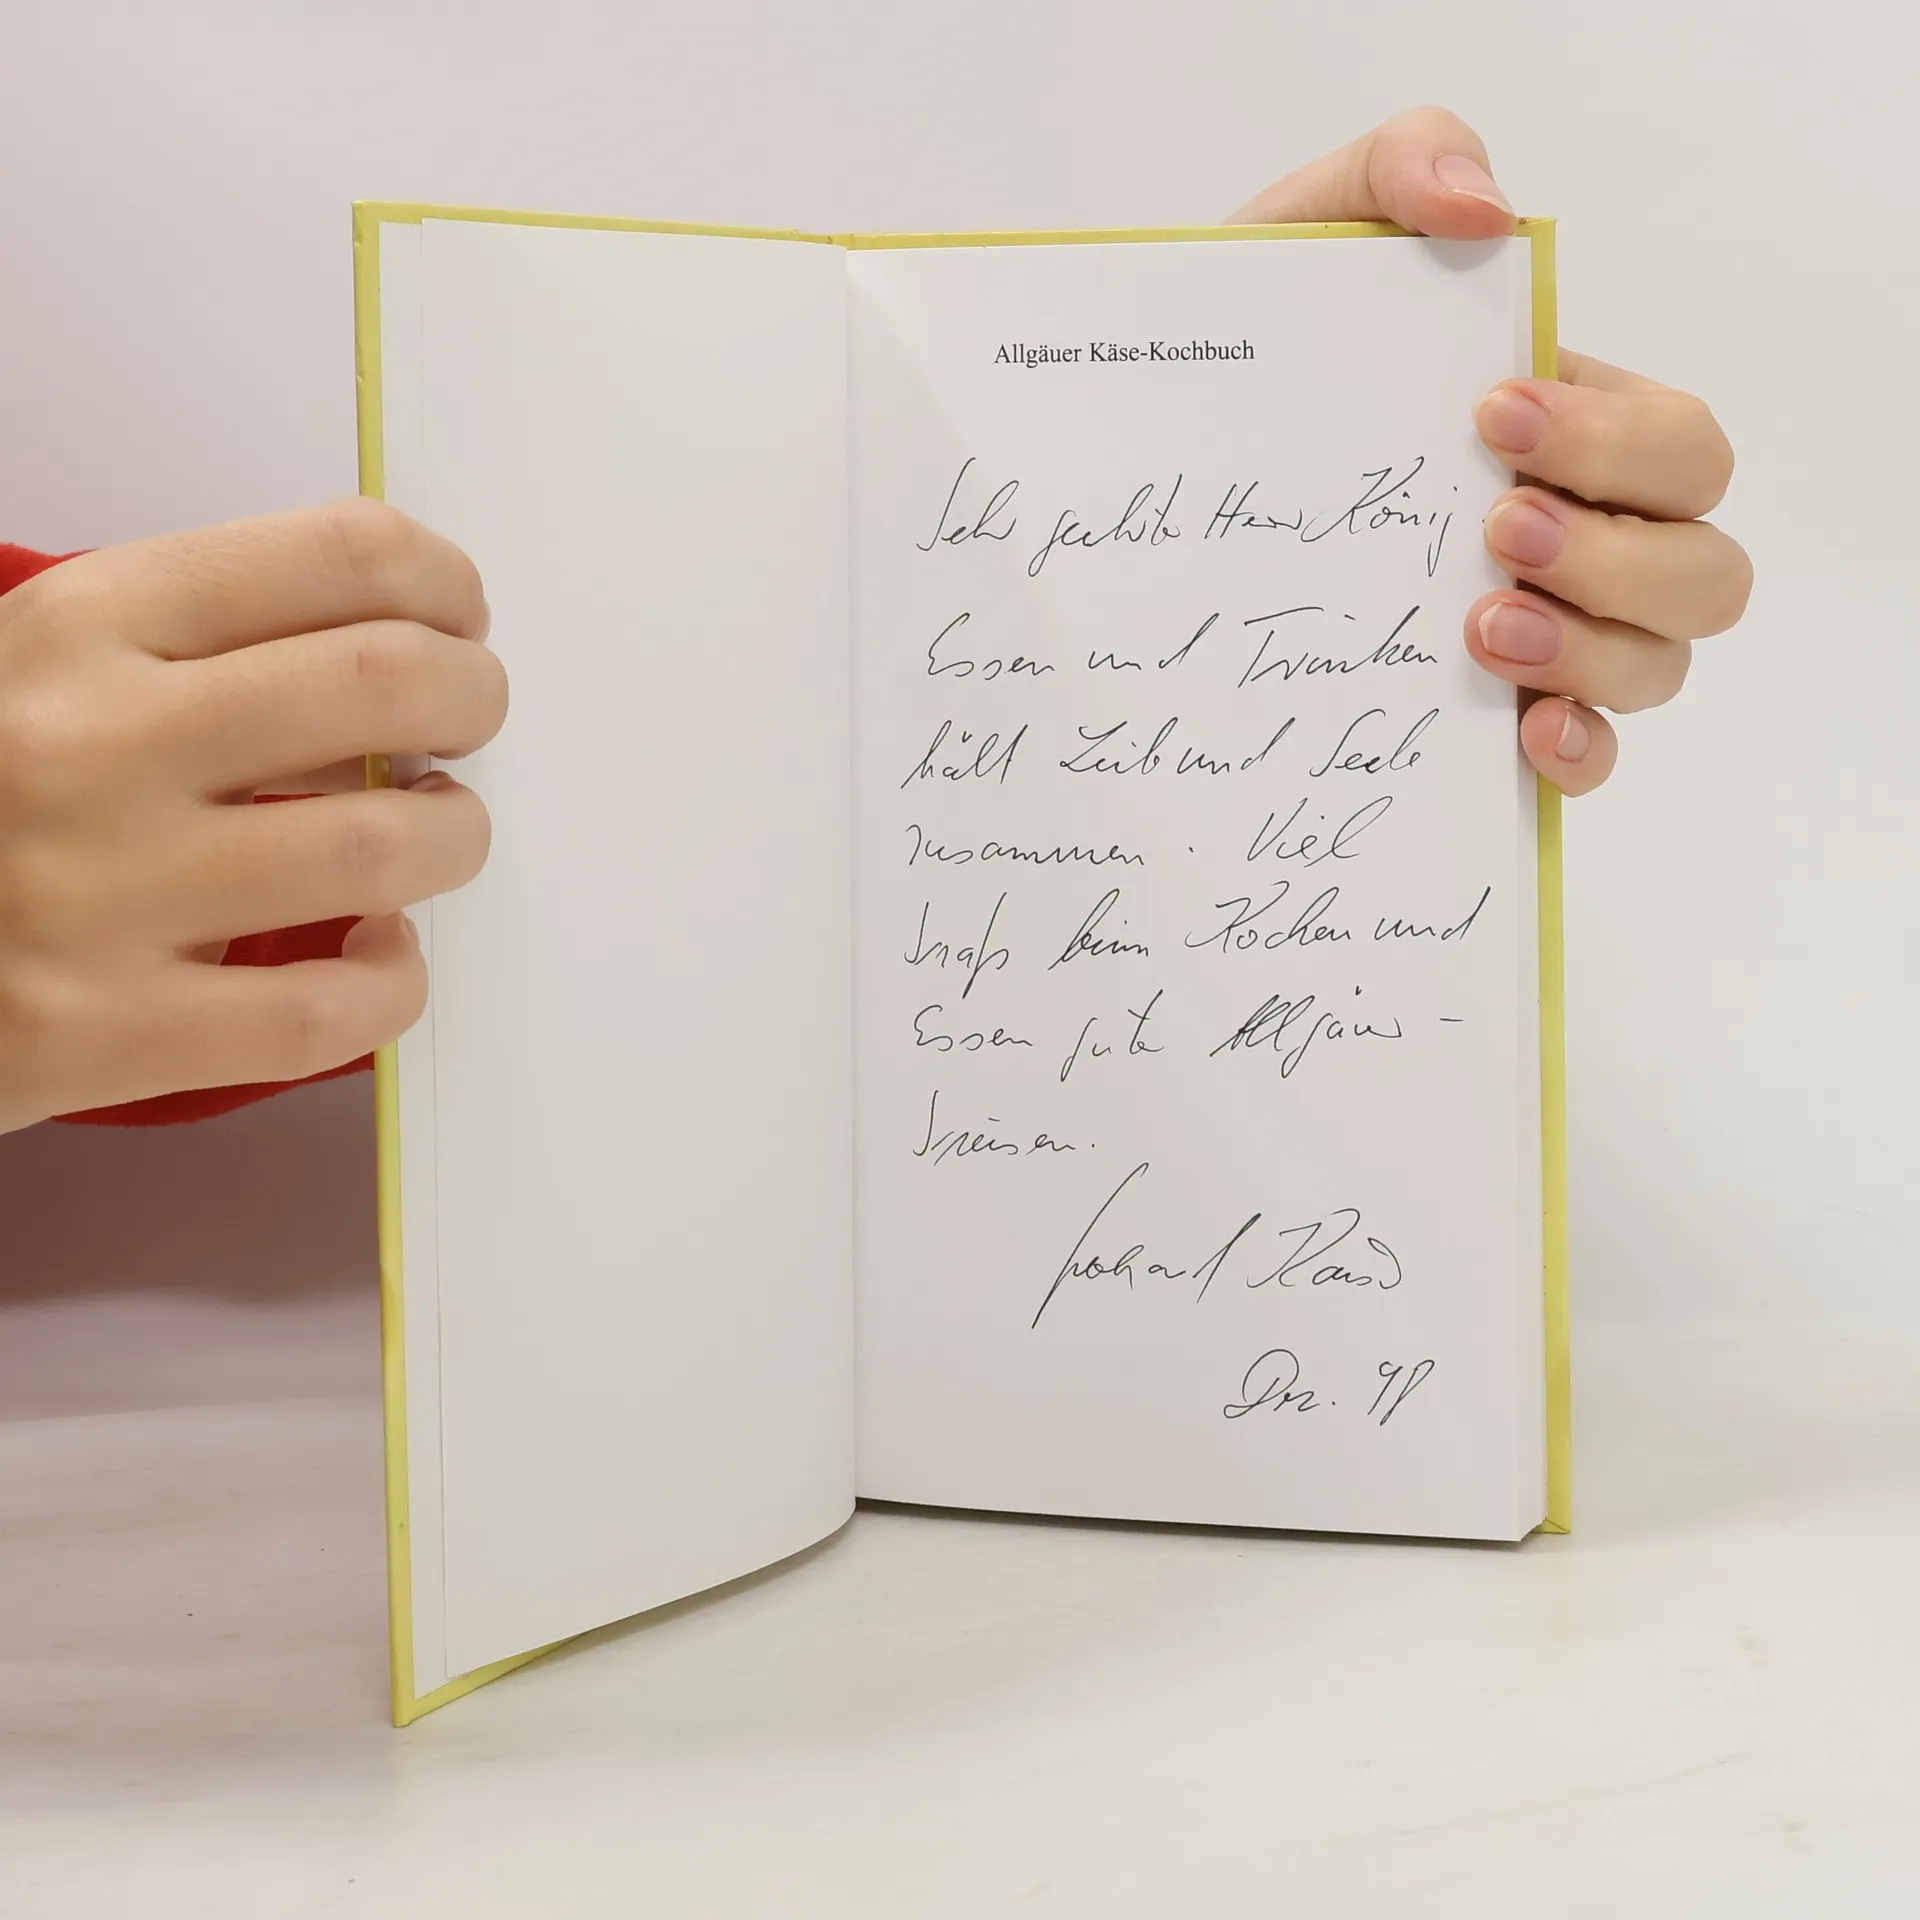 Allgäuer Käse-Kochbuch
Sehr geehrter Herr König
Essen und Trinken
hält Leib und Seele
zusammen. Viel
Spaß beim Kochen und
Essen guter Allgäuer-
Speisen.
Dez. 98